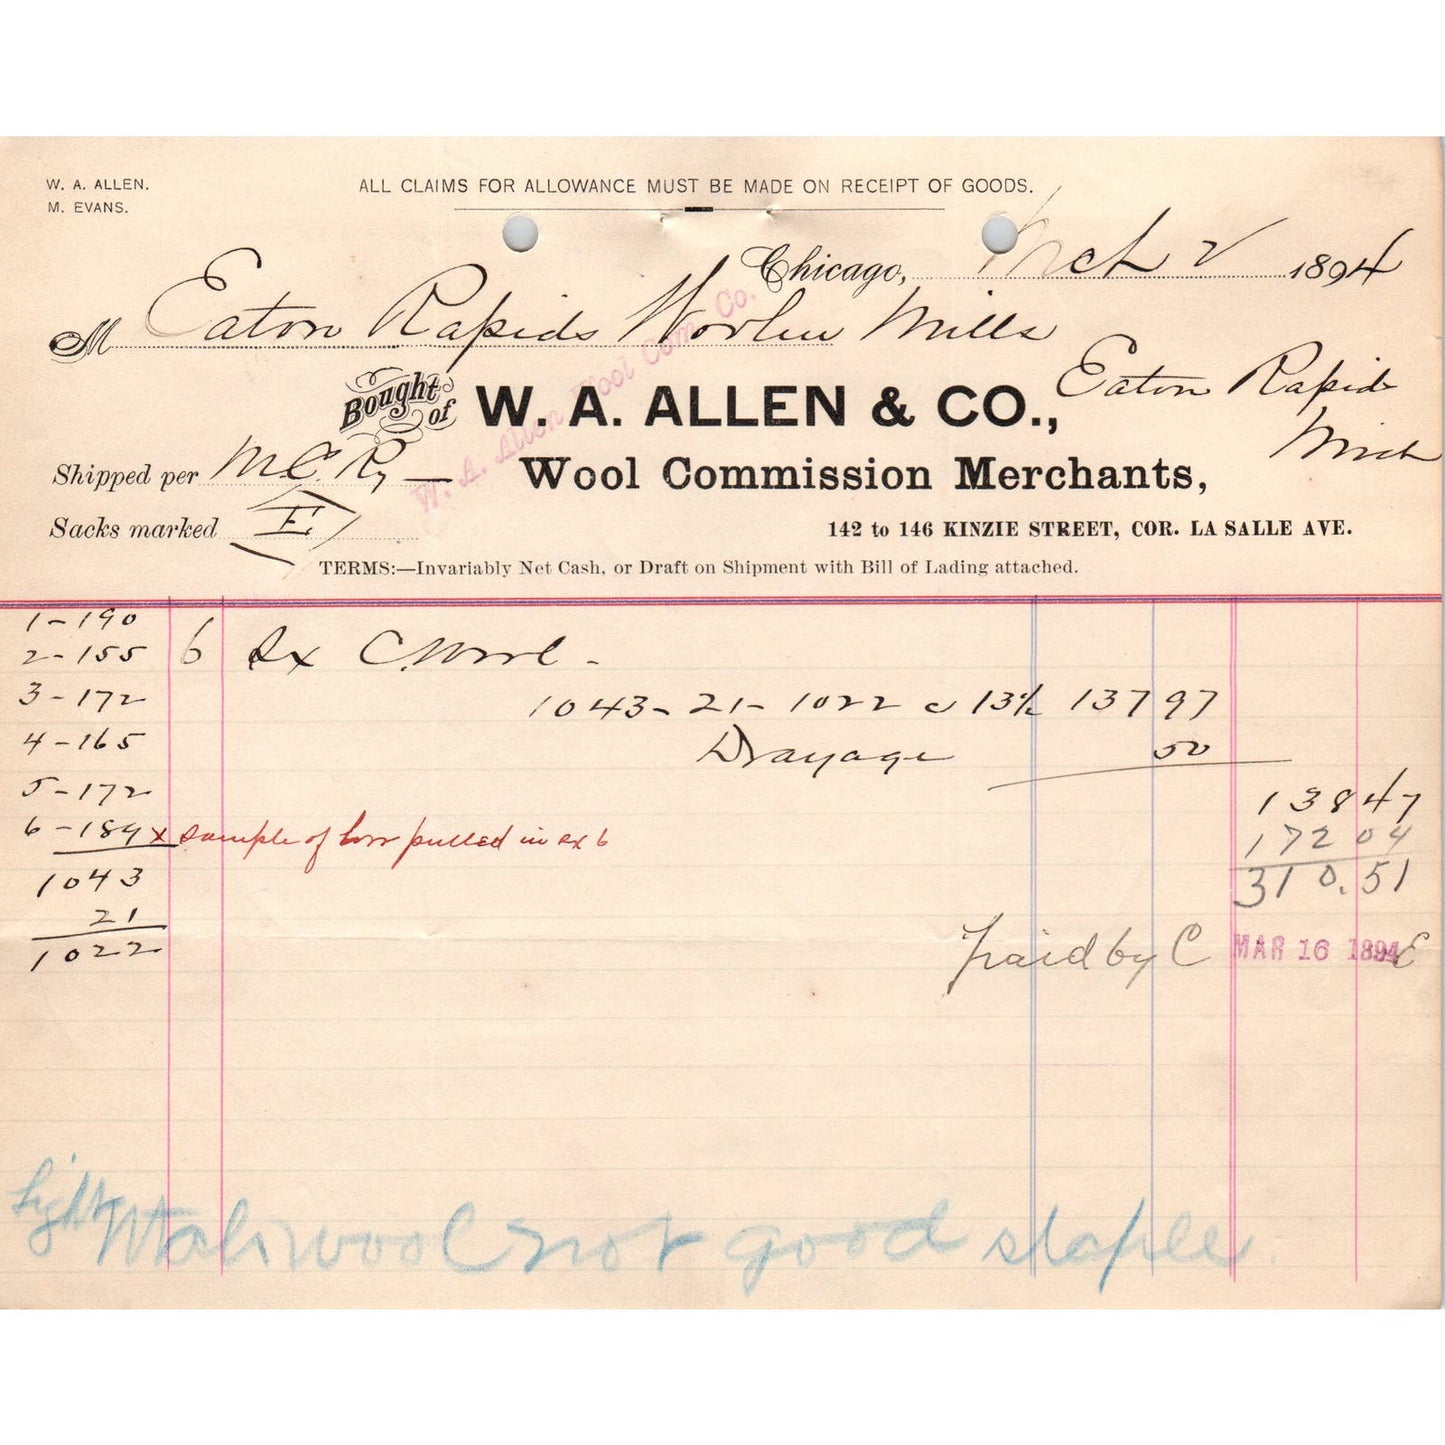 W. A. ALLEN.
M. EVANS.
ALL CLAIMS FOR ALLOWANCE MUST BE MADE ON RECEIPT OF GOODS.
Chicago, Mch 2 1894
M Eaton Rapids Woolen Mills
Eaton Rapids
Mich
Bought of W. A. ALLEN & CO.,
W. A. Allen Wool Com. Co.
Shipped per M.C. Ry
Wool Commission Merchants,
Sacks marked E
142 to 146 KINZIE STREET, COR. LA SALLE AVE.
TERMS:—Invariably Net Cash, or Draft on Shipment with Bill of Lading attached.
1-190
2-155 6 Sx C. Wool -
3-172 1043-21-1022 @ 13½ 137 97
4-165 Drayage 50
5-172 138 47
6-189 x sample of hair pulled in sx 6 172 04
1043 310.51
21
1022
Paid by C MAR 16 1894 E
Light wool not good staple.